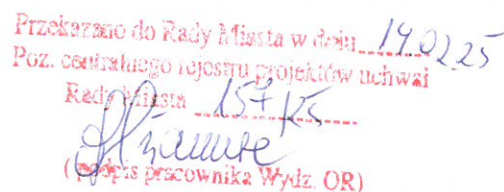 Przekazano do Rady Miasta w dniu 14.02.25
Poz. centralnego rejestru projektów uchwał
Rady Miasta 157/25
(podpis pracownika Wydz. OR)